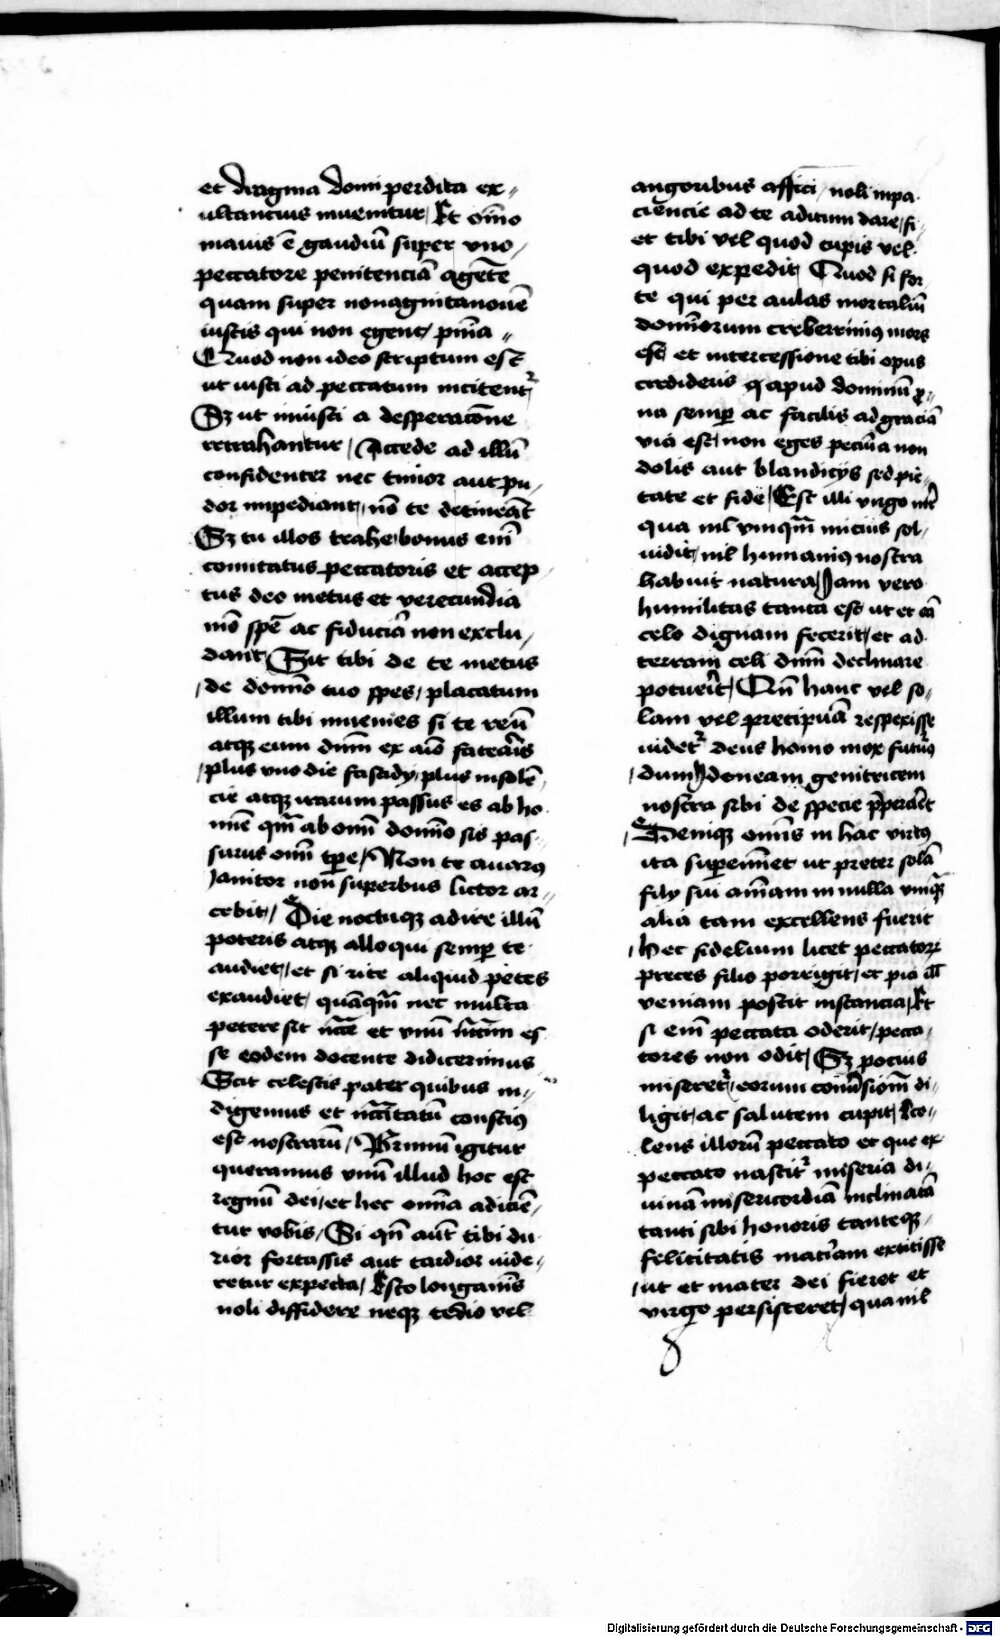 et dragma domi perdita ex〃
ultancius inuenitur / Et oīno
maius ē gaudiū super vno /
peccatore penitenciā agētē
quam super nonagintanouē
iustis qui non egent / pn̄ia 〃
Quod non ideo scriptum est
ut iusti ad peccatum incitent᷑
Sꝫ ut iniusti a desperacōne
retrahantur / Accede ad illū
confidenter nec timor aut pu /
dor impediant / nō te detineāt
Sꝫ tu illos trahe bonus enī
comitatus peccatoris et accep
tus deo metus et verecundia
mō spē ac fiduciā non exclu /
dant Sit tibi de te metus
/ de domīo tuo spes / placatum
illum tibi inuenies si te reū
atqꝫ eum dnm̄ ex aīo fatearis
/ plus vno die fastidÿ / plus insolē
cie atqꝫ irarum passus es ab ho
mīe qm̄ ab omī domīo sis pas-
surus omī tꝑe / Non te auarꝯ
Janitor non superbus lictor ar
cebit / Die noctuqꝫ adire illū
poteris atqꝫ alloqui semꝑ te
audiet / et si rite aliquid petes
exaudiet / quāqm̄ nec multa
petere sit nc̄cē et vnū nc̄cim es
se eodem docente didicerimus
Scit celestis pater quibus in〃
digemus et nc̄citatū conscius
est nostrarū / Primū igitur
queramus vnū illud hoc est
regnū dei / et hec omīa adiciē /
tur vobis / Si qn̄ aūt tibi du
rior fortassis aut tardior vide /
retur expecta / Esto longaīmis
noli diffidere neqꝫ tedio vel
angoribus affici / noli inpa
ciencie ad te aditum dare / fi /
et tibi vel quod cupis vel
quod expedit Quod si for
te qui per aulas mortaliū
domīorum creberrimꝯ mos
est et intercessione tibi opus
credideris qꝫ apud dominū ꝓ
na semꝑ ac facilis ad graciā
via est / non eges pecuīa non
dolis aut blandicÿs sed pie
tate et fide / Est illi virgo mr̄
qua nil vmqm̄ micius sol
uidit / nil humaniꝯ nostra
habuit natura / Jam vero
humilitas tanta est ut et eā
celo dignam fecerit / et ad
terram celi dnm̄ declinare
potuerit / Qn̄ hanc vel so /
lam vel precipuā respexisse
videt᷑ deus homo mox futurꝯ
/ dum ydoneam genitricem
nostra sibi de specie p̄ꝑaret
/ Deniqꝫ omīs in hac virtꝯ
ita supereminet ut preter solā
filÿ sui aīmam in nulla vmqꝫ
alia tam excellens fuerit
/ Hec fidelium licet peccatorꝝ
preces filio porrigit / et pia ill̄
veniam poscit instancia / Et
si enī peccata oderit / pecca /
tores non odit / Sꝫ pocius
miseret᷑ / eorum conūsionē di /
ligit / ac salutem cupit / Reco /
lens illorū peccato et que ex
peccato nascit᷑ miseria di /
uinā misericordiā inclinatā
tanti sibi honoris tanteqꝫ /
felicitatis mat̄iam extitisse
/ ut et mater dei fieret et
virgo persisteret / qua nil